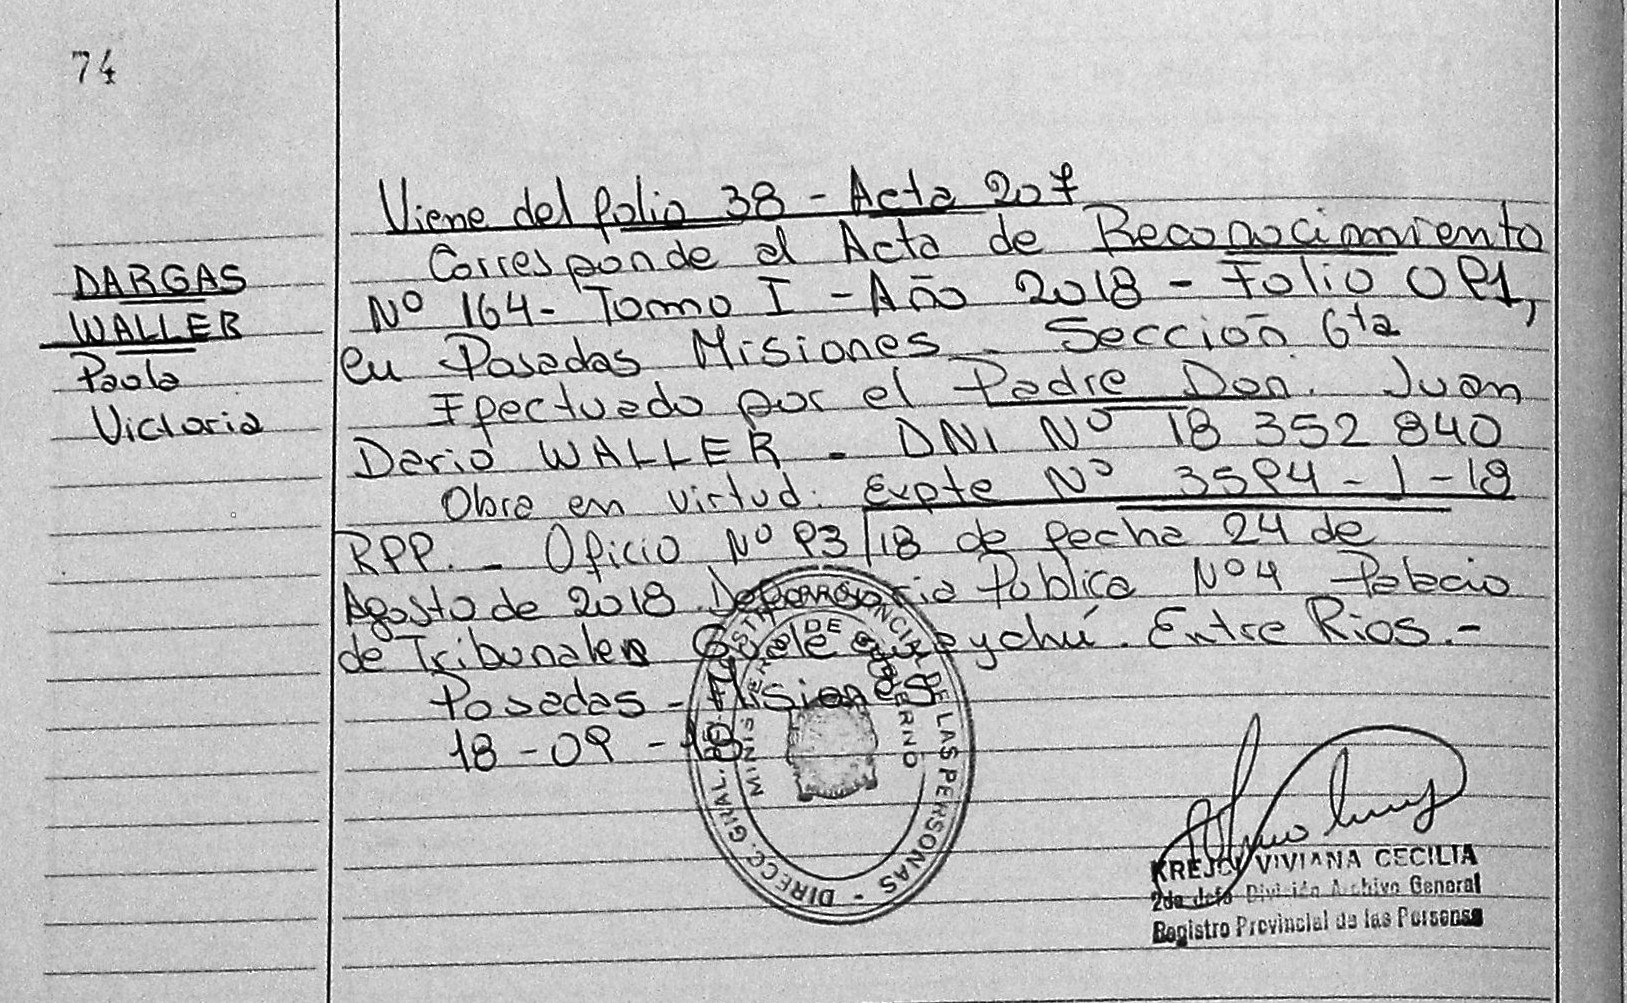 74
Viene del folio 38 - Acta 207
Corresponde al Acta de Reconocimiento
DARGAS
Nº 164- Tomo I - Año 2018 - Folio 091,
WALLER
en Posadas Misiones - Sección 6ta
Paola
Efectuado por el Padre Don. Juan
Victoria
Dario WALLER - DNI Nº 18 352 840
Obra en virtud. Expte Nº 3594-1-18
RPP. - Oficio Nº 93/18 de fecha 24 de
Agosto de 2018. Defensoria Pública Nº4 Palacio
de Tribunales Gualeguaychú. Entre Rios.-
Posadas - Misiones
18-09-18
DIRECC. GRAL. DE LAS PERSONAS
MINIS DE GOBIERNO
KREJCI VIVIANA CECILIA
2da Jefa División Archivo General
Registro Provincial de las Personas